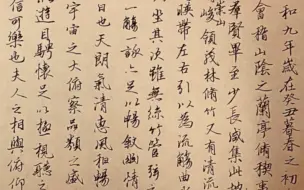 和九年歲在癸丑暮春之初
會稽山陰之蘭亭脩稧
羣賢畢至少長咸集此
崇山
峻領茂林脩竹又有清流
暎帶左右引以為流觴曲
坐其次雖無絲竹管弦
一觴一詠亦足以暢敘幽情
日也天朗氣清惠風和暢
宇宙之大俯察品類之盛
遊目騁懷足以極視聽之
信可樂也夫人之相與俯仰